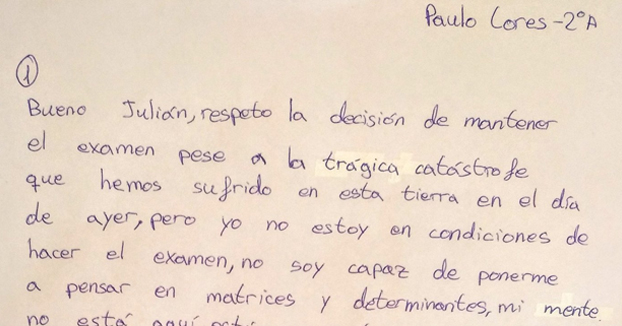 Paulo Lores-2ºA
①
Bueno Julián, respeto la decisión de mantener
el examen pese a la trágica catástrofe
que hemos sufrido en esta tierra en el día
de ayer, pero yo no estoy en condiciones de
hacer el examen, no soy capaz de ponerme
a pensar en matrices y determinantes, mi mente
no está aquí